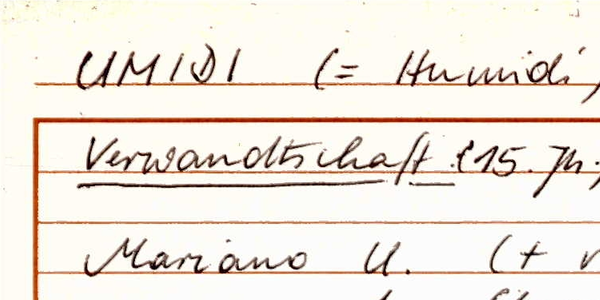 UMIDI (= Humidi,
Verwandtschaft 15. Jh.,
Mariano U. (+